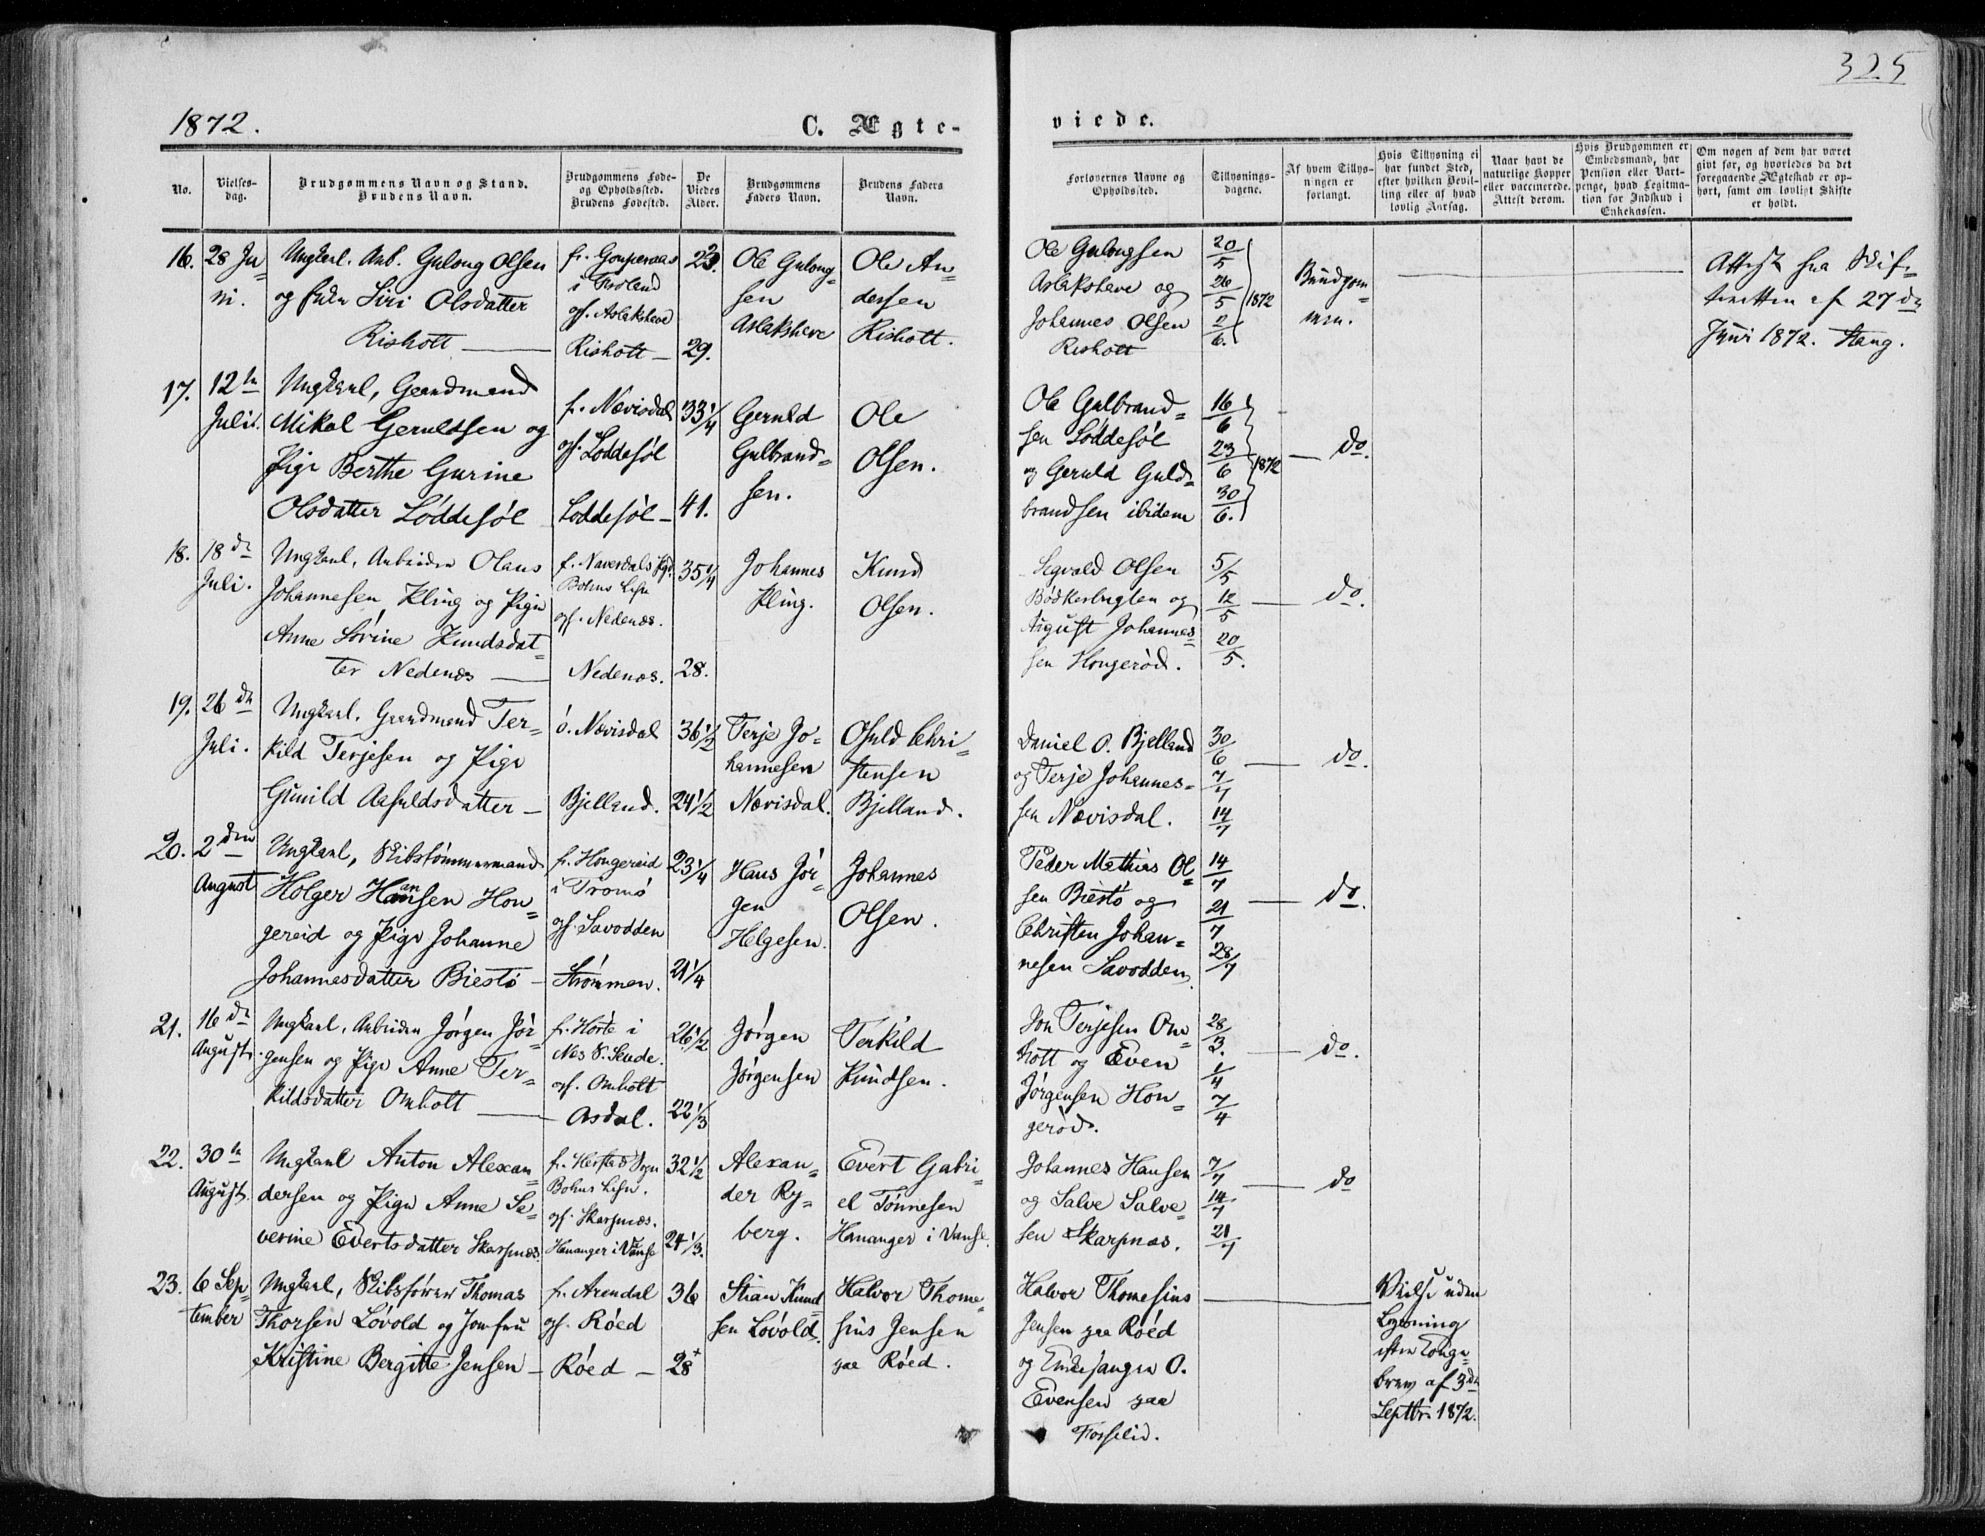 325
1872.
C. Ægte-
viede.
No.
Vielses-
dag.
Brudgommens Navn og Stand.
Brudens Navn.
Brudgommens Føde-
og Opholdssted.
Brudens Fødested.
De
Viedes
Alder.
Brudgommens
Faders Navn.
Brudens Faders
Navn.
Forlovernes Navne og
Opholdssted.
Tillysnings-
dagene.
Af hvem Tillys-
ningen er
forlangt.
Hvis Tillysning ei
har fundet Sted,
efter hvilken Bevil-
ling eller af hvad
lovlig Aarsag.
Naar havt de
naturlige Kopper
eller vaccinerede.
Attest derom.
Hvis Brudgommen er
Embedsmand, har
Pension eller Vart-
penge, hvad Legitima-
tion for Indskud i
Enkekassen.
Om nogen af dem har været
givt før, og hvorledes da det
foregaaende Ægteskab er op-
hørt, samt om lovligt Skifte
er holdt.
16.
28 Ju-
ni.
Ungkarl. Arb. Gulong Olsen
og Siri Olsdatter
Risholt
i Froland
of. Aslaksheve
Risholt
23.
29.
Ole Gulong-
sen
Aslaksheve
Ole An-
dersen
Risholt.
Ole Gulongsen
Aslaksheve og
Johannes Olsen
Risholt
20/5
26/5 1872
2/6.
Brudgom-
men.
Attest fra Skif-
teretten af 27de
Juni 1872. Stang.
17.
12te
Juli.
Ungkarl, Gaardmand
Mikal Geruldsen og
Pige Berthe Gurine
Olsdatter Løddesøl
f. Nævisdal
of. Løddesøl
Løddesøl
33 1/4
41.
Geruld
Gulbrand-
sen.
Ole
Olsen.
Ole Gulbrand-
sen Løddesøl
og Geruld Guld-
brandsen ibidem
16/6
23/6 1872
30/6.
do.
18.
18de
Juli.
Ungkarl, Arbeider Olaus
Johannesen Kling og Pige
Anne Sørine Knudsdat-
ter Nedenæs
f. Naverdals
Bohus Lehn
of. Nedenæs.
Nedenæs.
35 1/4
28.
Johannes
Kling.
Knud
Olsen.
Segvald Olsen
Bødkerbugten og
August Johannes-
sen Hongerød.
5/5
12/5
20/5.
do.
19.
26de
Juli.
Ungkarl, Gaardmand Ter-
kild Terjesen og Pige
Gunild Aasuldsdatter
Nævisdal
Bjelland.
36 1/2
24 1/2
Terje Jo-
hannesen
Nævisdal.
Osuld Chri-
stensen
Bjelland.
Daniel O. Bjelland
og Terje Johannes-
sen Nævisdal.
30/6
7/7
14/7
do.
20.
2den
August
Ungkarl, Skibstømmermand
Holger Hansen Hon-
gereid og Pige Johanne
Johannesdatter Biestø
f. Hongereid
i Tromø
of. Savodden
Strømmen.
23 1/4
21 1/4
Hans Jør-
gen
Helgesen.
Johannes
Olsen.
Peder Mathias Ol-
sen Biestø og
Christen Johan-
nesen Savodden
14/7
21/7
28/7
do.
21.
16de
August.
Ungkarl, Arbeider Jørgen Jør-
gensen og Pige Anne Ter-
kildsdatter Omholt
fr. Horte i
Nes S.
of. Omholt
Asdal.
26 1/2
22 1/3
Jørgen
Jørgensen
Terkild
Knudsen.
Jon Terjesen Om-
holt og Even
Jørgensen Hon-
gerød.
28/3.
1/4
7/4
do.
22.
30te
August.
Ungkarl Anton Alexan-
dersen og Pige Anne Se-
verine Evertsdatter Skarpnæs.
Sogn
Bohus Lehn.
of. Skarpnæs.
Hananger i Vanse
32 1/2
24 1/3.
Alexan-
der Ry-
berg.
Evert Gabri-
el Tønnesen
Hananger i Vanse.
Johannes Hansen
og Salve Salve-
sen Skarpnæs.
7/7
14/7
21/7
do
23.
6 Sep-
tember
Ungkarl, Skibsfører Thomas
Thorsen Løvold og Jomfru
Kristine Bergitte Jensen
fr. Arendal
of. Røed
Røed
36
28
Stian Knud-
sen Løvold.
Halvor Thome-
sius Jensen
paa Røed.
Halvor Thomesius
Jensen paa Røed
og Kirkesanger O.
Evensen paa
Fosselid.
Vielse uden
Lysning
efter Konge-
brev af 3de
Septbr. 1872.